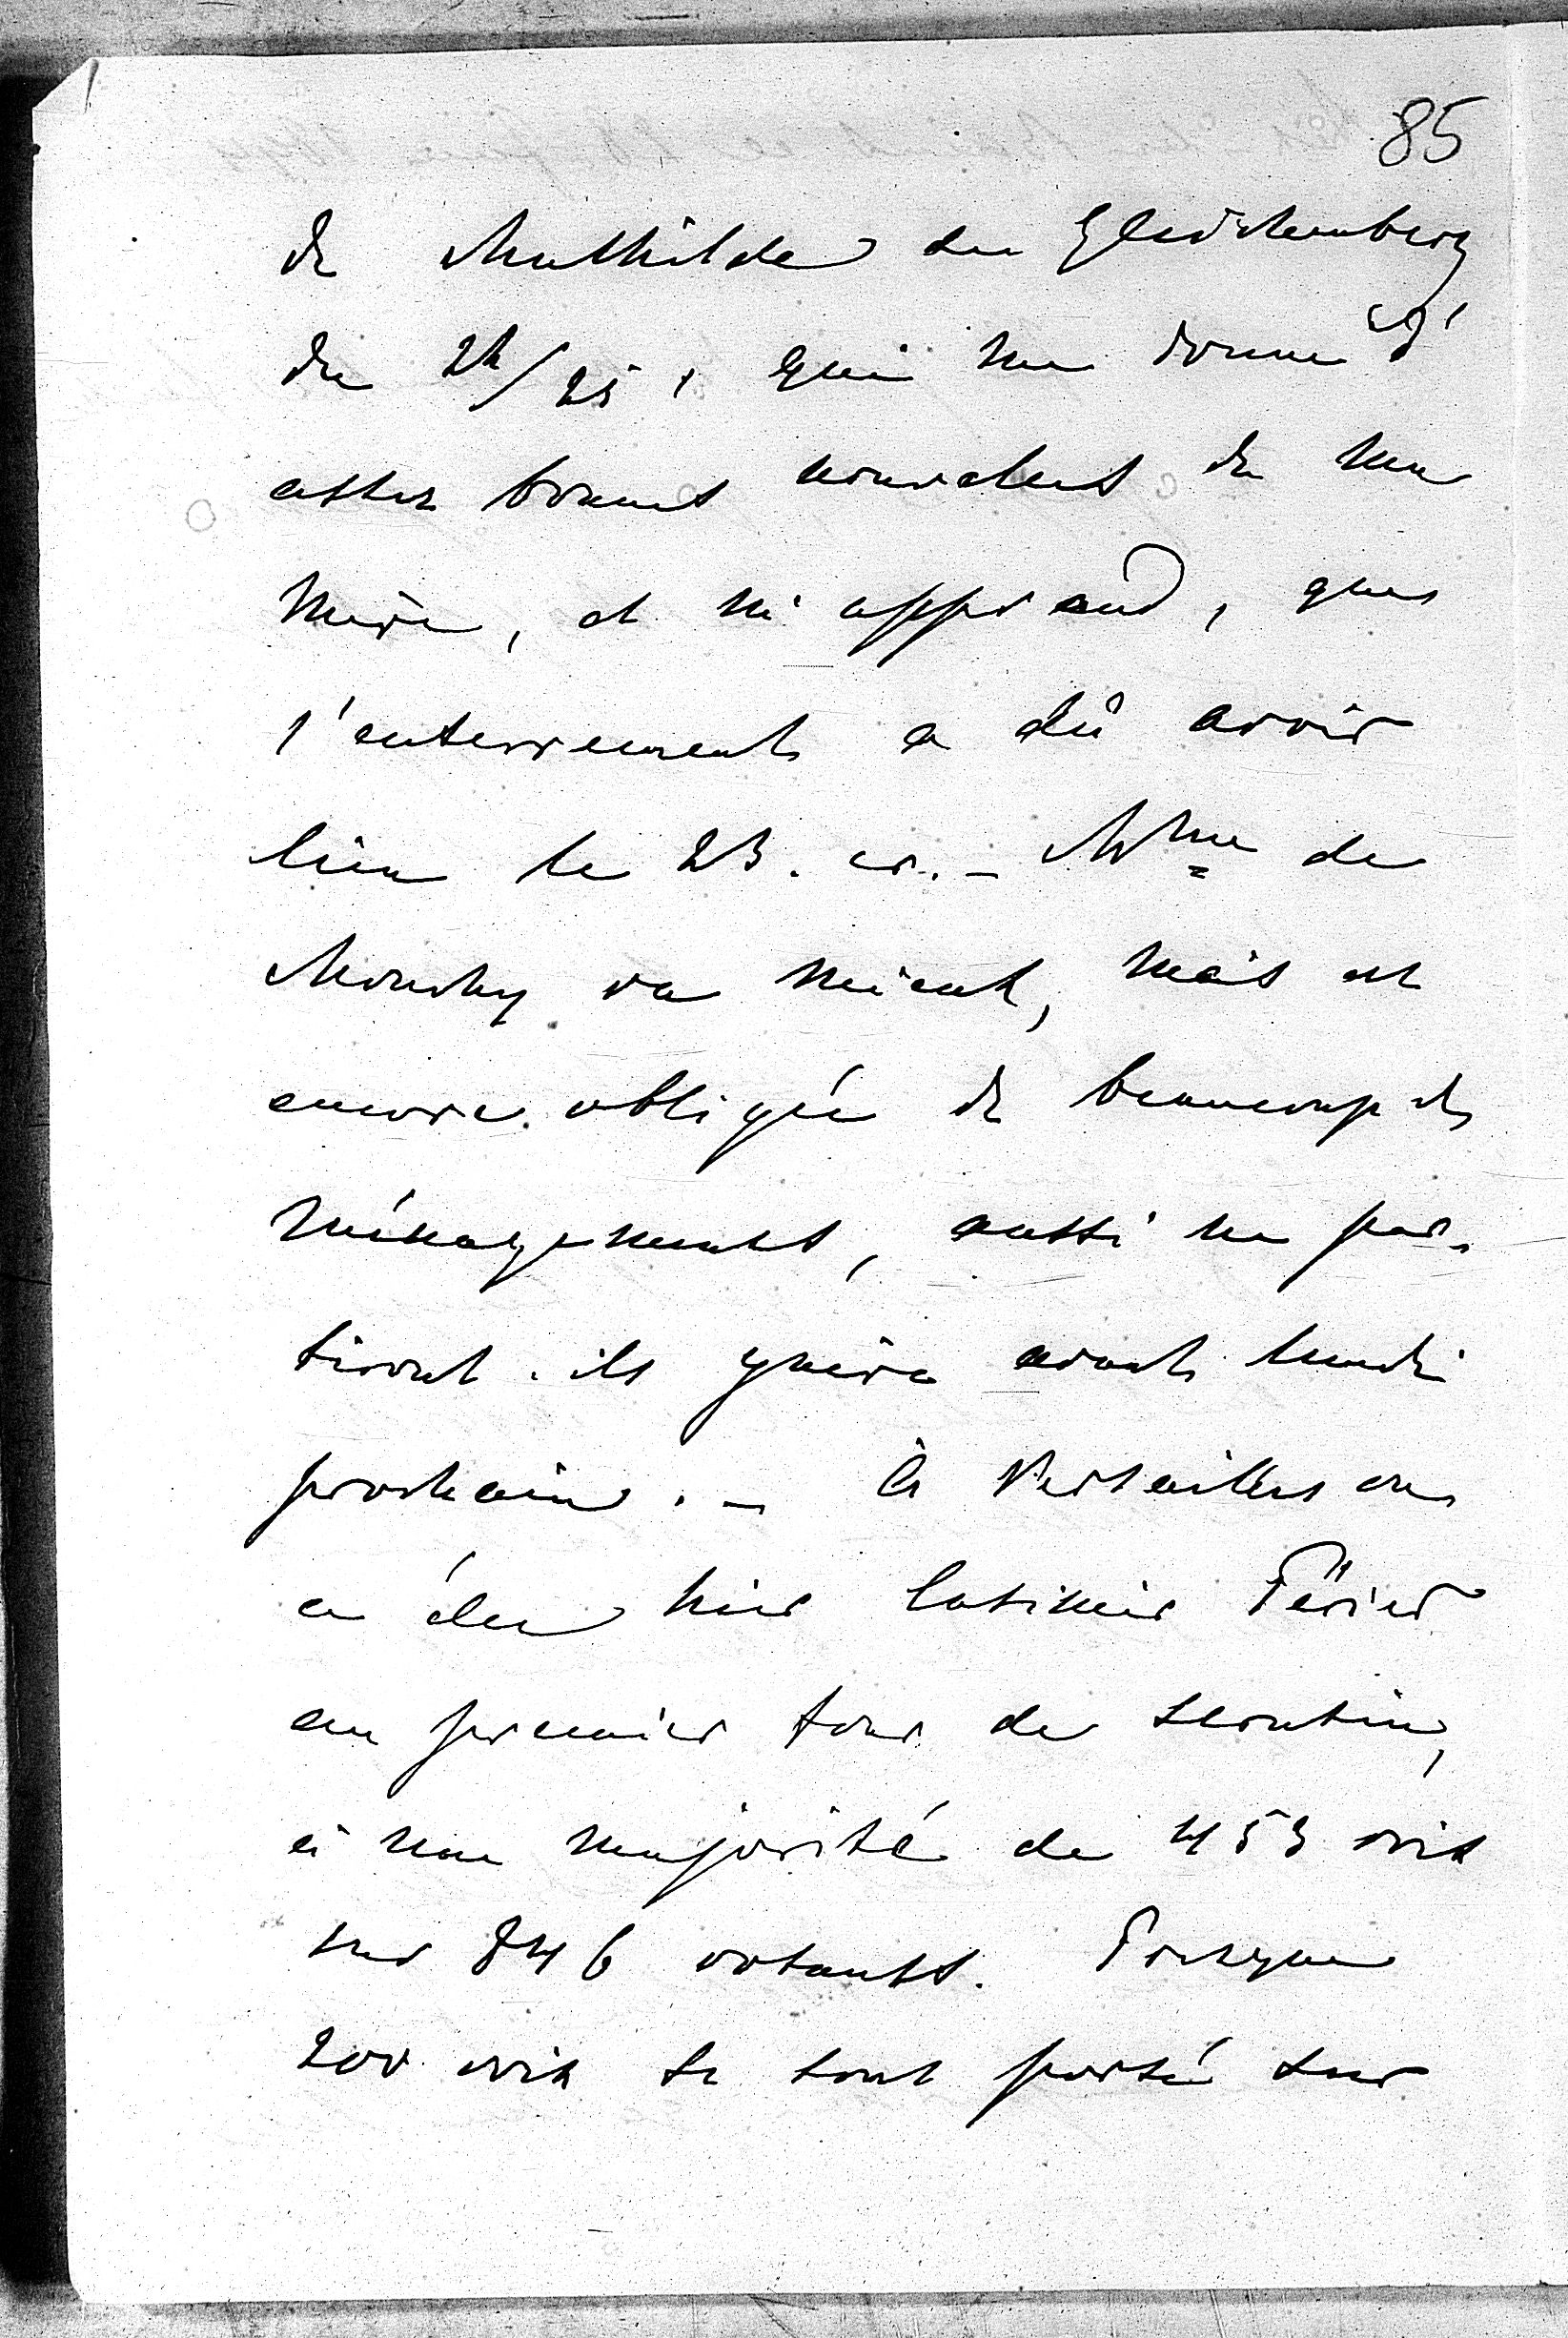 85
de Mathilde de Gleichenberg
du 24/25, qui me donne d'
assez bonnes nouvelles de ma
mère, et m'apprend, que
l'enterrement a dû avoir
lieu le 23. cr. - Mme de
Mouchy va mieux, mais est
encore obligée de beaucoup de
ménagements, aussi ne par-
tiront-ils guère avant lundi
prochain. - à Versailles on
a élu hier Casimir Périer
au premier tour de scrutin,
à une majorité de 453 voix
sur 846 votants. Presque
200 voix se sont porté sur